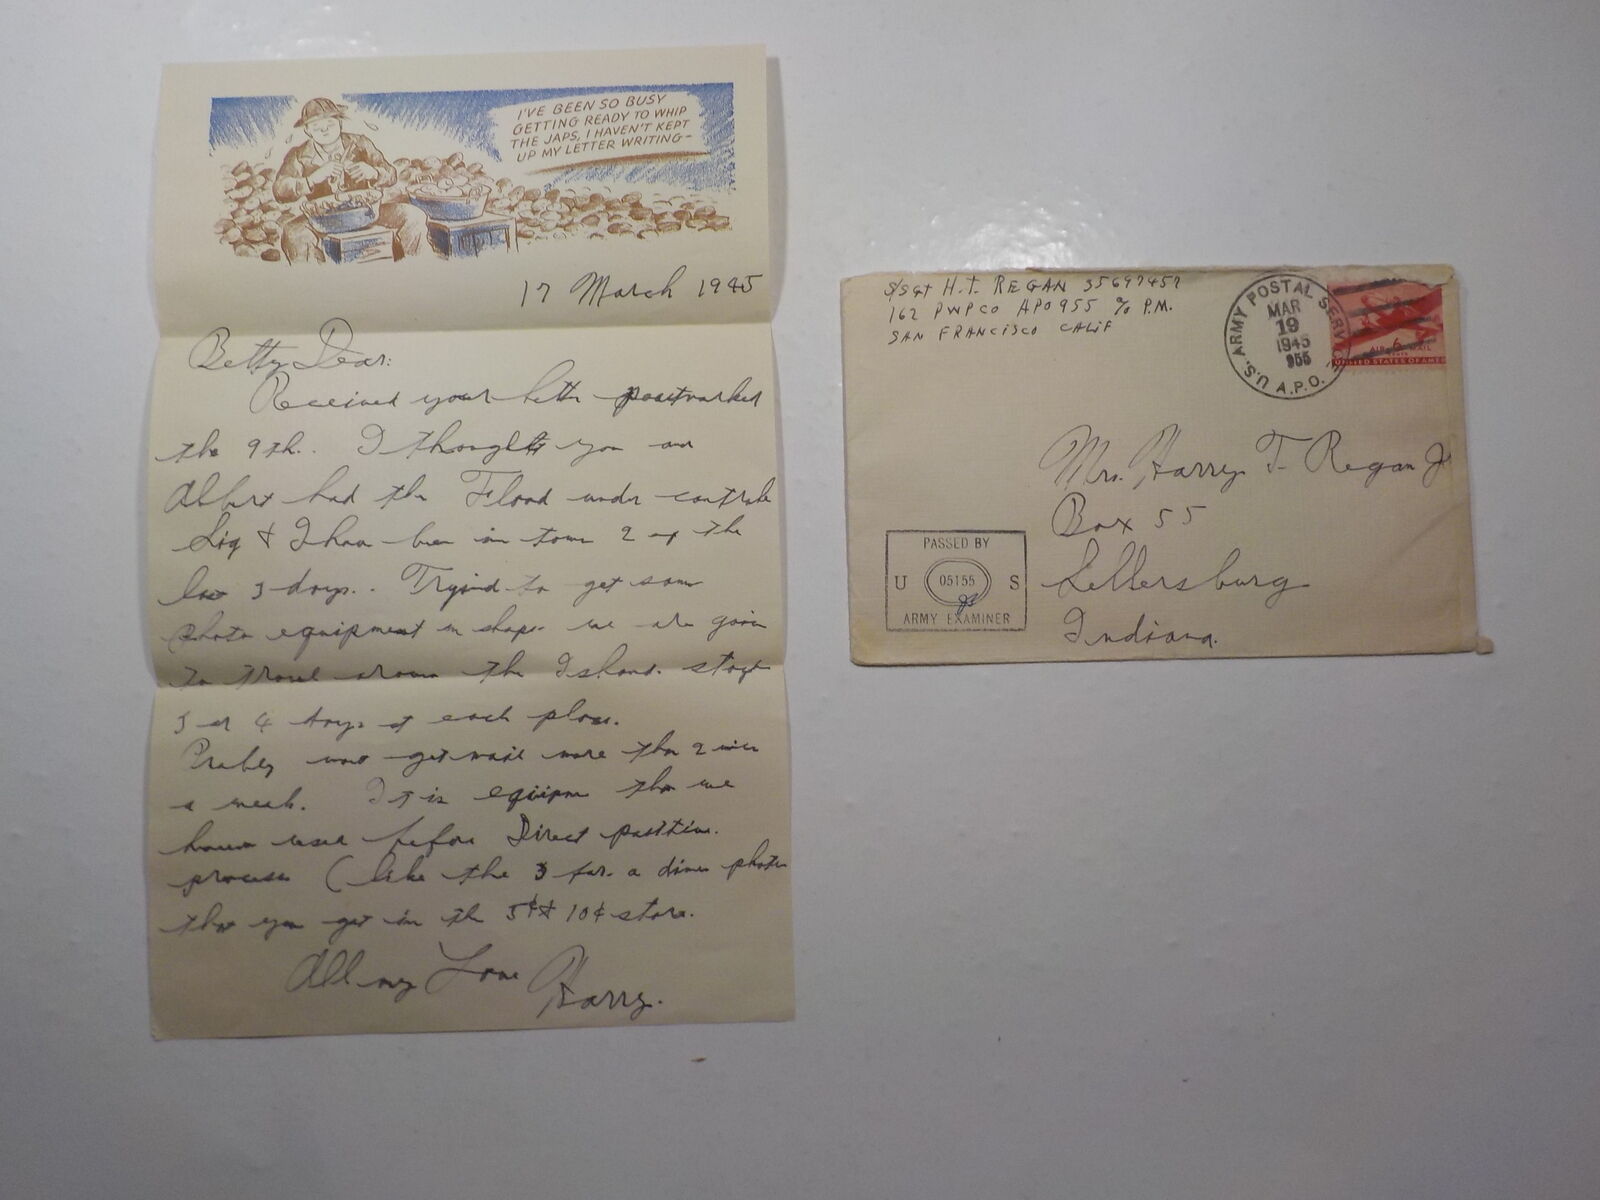 I'VE BEEN SO BUSY
GETTING READY TO WHIP
THE JAPS, I HAVEN'T KEPT
UP MY LETTER WRITING-
17 March 1945
Betty Dear:
Received your letter postmarked
the 9th. I thought you and
Albert had the Flood under control
& I have been in town 2 of the
las 3 days. Trying to get some
photo equipment in shape we are goin
to travel aroun the Island. stay
3 or 4 days at each place.
Probly wont get mail more tha 2
a week. It is equipm tha we
used before Direct positive
process (like the 3 for a dime photo
tha you get in the 5¢ & 10¢ store.
All my Love Harry.
S/SGT H.T. REGAN 35697457
162 PWPCO APO 955 c/o P.M.
SAN FRANCISCO CALIF
U.S. ARMY POSTAL SERVICE
MAR
19
1945
955
A.P.O.
AIR 6¢ MAIL
UNITED STATES OF AMER
Mrs. Harry T. Regan Jr
Box 55
Sellersburg
Indiana.
PASSED BY
U 05155 S
ARMY EXAMINER